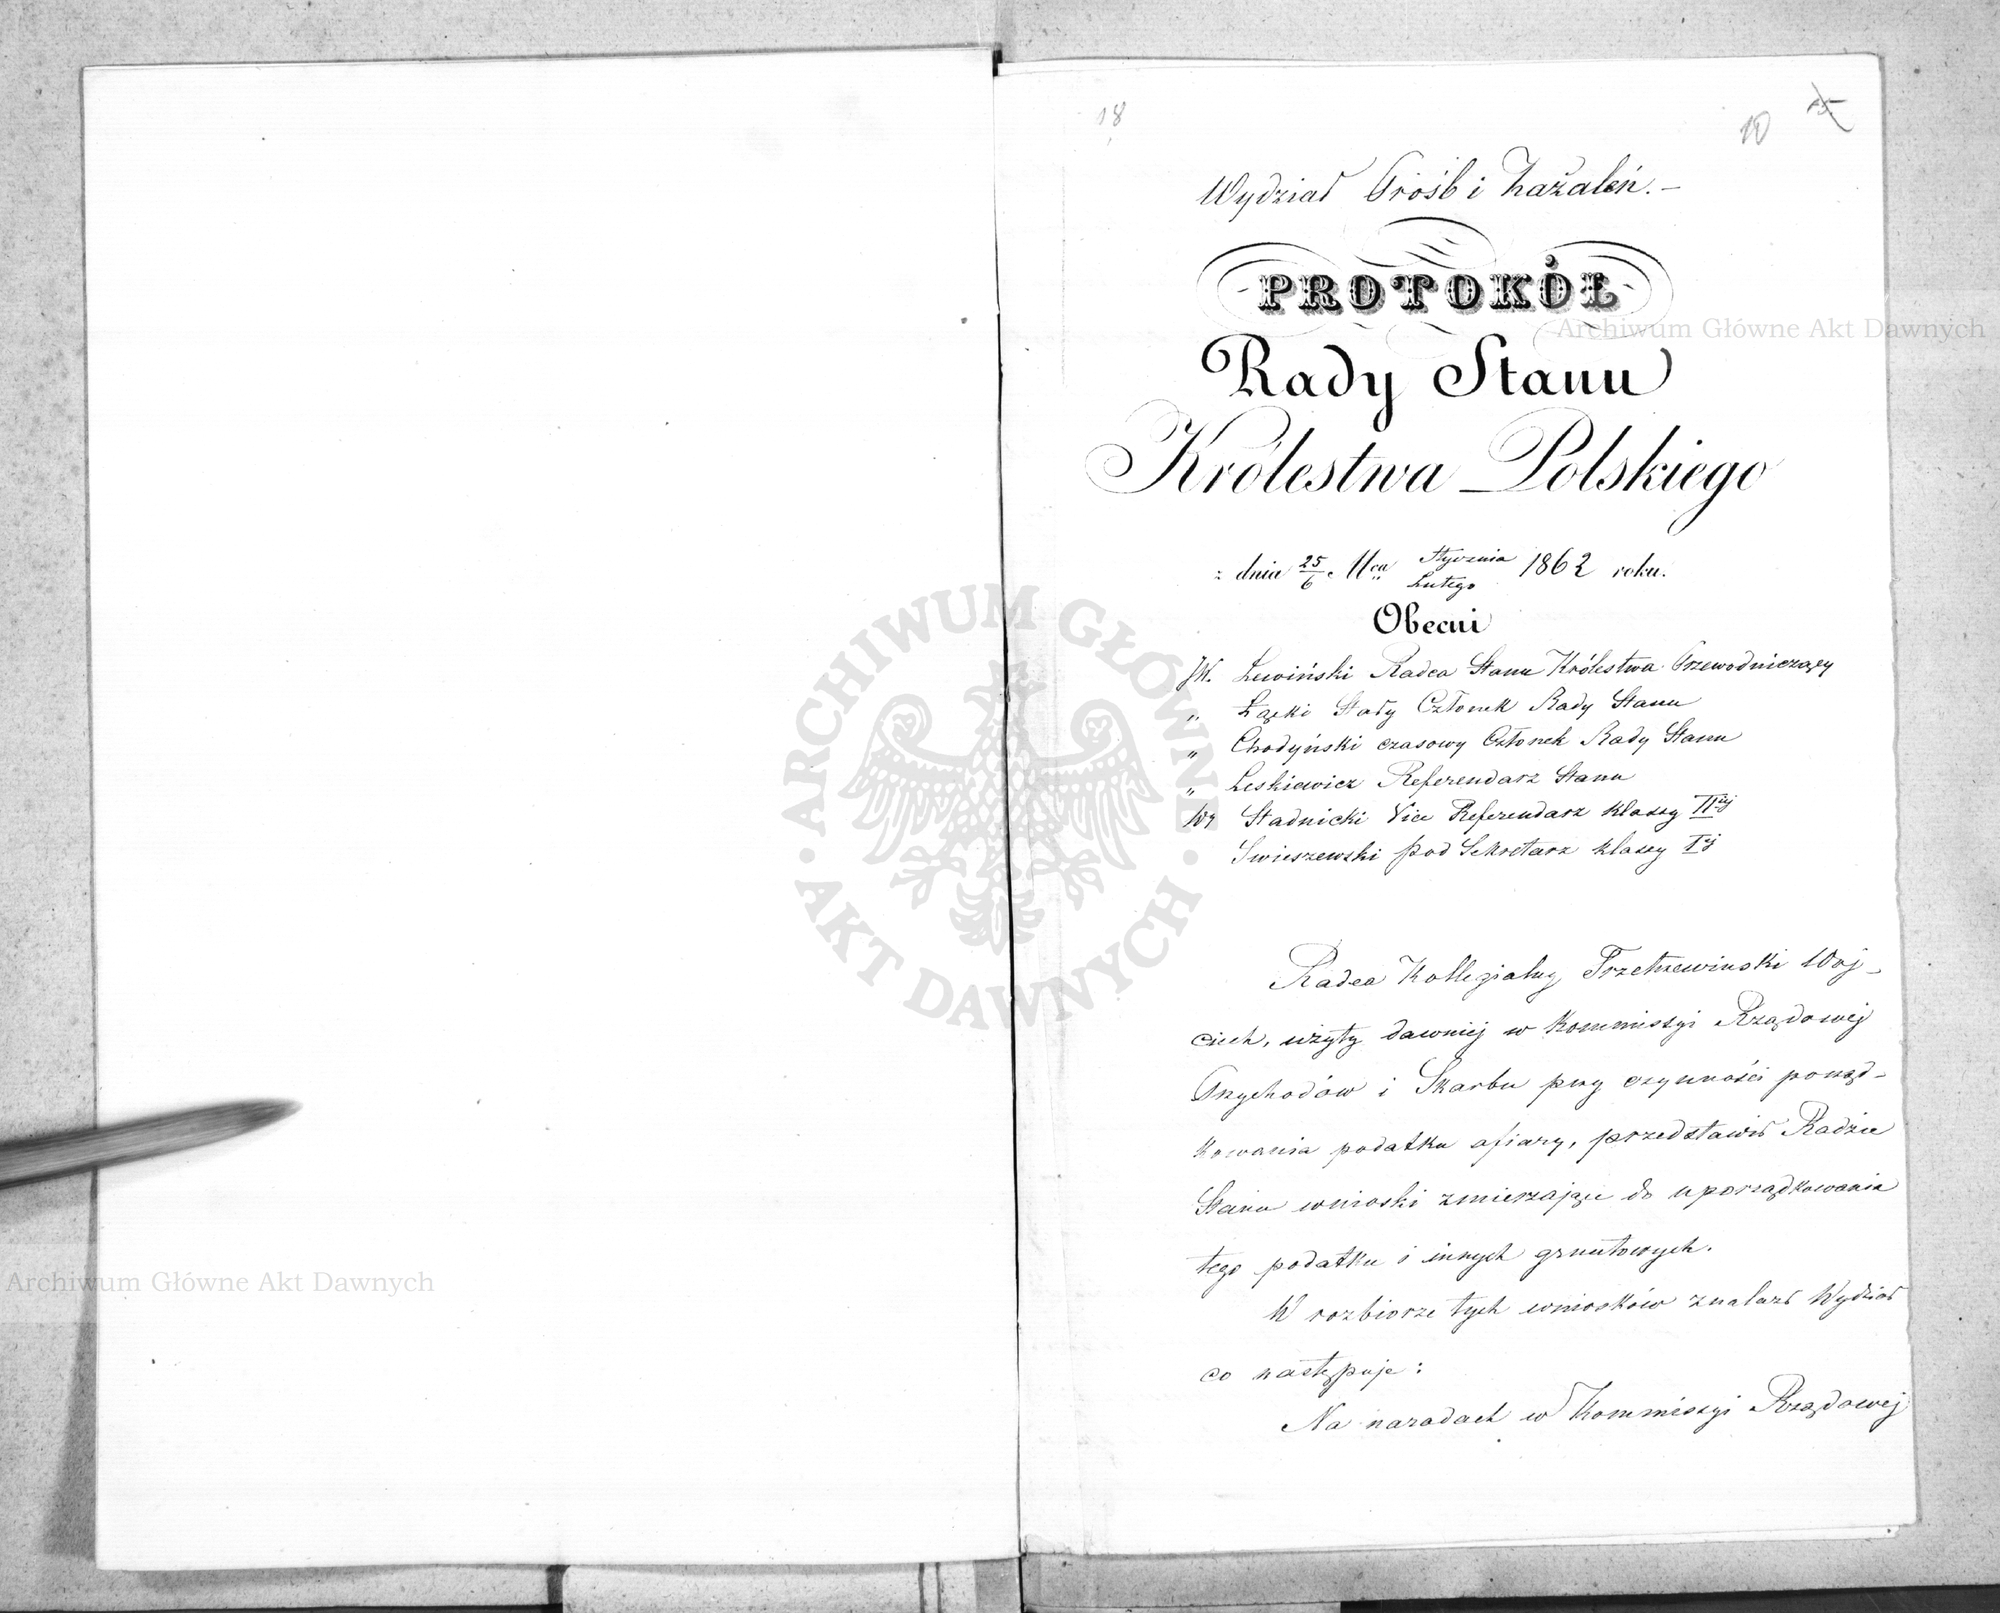 18
10
Wydział Próśb i Zażaleń. —
PROTOKÓŁ
Rady Stanu
Królestwa Polskiego
z dnia 25/6 Mca Stycznia/Lutego 1862 roku.
Obecni
JW. Lewiński Radca Stanu Królestwa Przewodniczący
„ Łąski Stały Członek Rady Stanu
„ Chodyński czasowy Członek Rady Stanu
„ Leskiewicz Referendarz Stanu
Wy Stadnicki Vice Referendarz klassy IIej
Swieszewski pod Sekretarz klassy Iej
Radca Kollegialny Trzetrzewinski Woj-
ciech, użyty dawniej w Kommissyi Rządowej
Przychodów i Skarbu przy czynności porząd-
kowania podatku ofiary, przedstawił Radzie
Stanu wnioski zmierzające do uporządkowania
tego podatku i innych gruntowych.
W rozbiorze tych wniosków znalazł Wydział
co następuje:
Na naradach w Kommissyi Rządowej
Archiwum Główne Akt Dawnych
Archiwum Główne Akt Dawnych
ARCHIWUM GŁÓWNE · AKT DAWNYCH ·